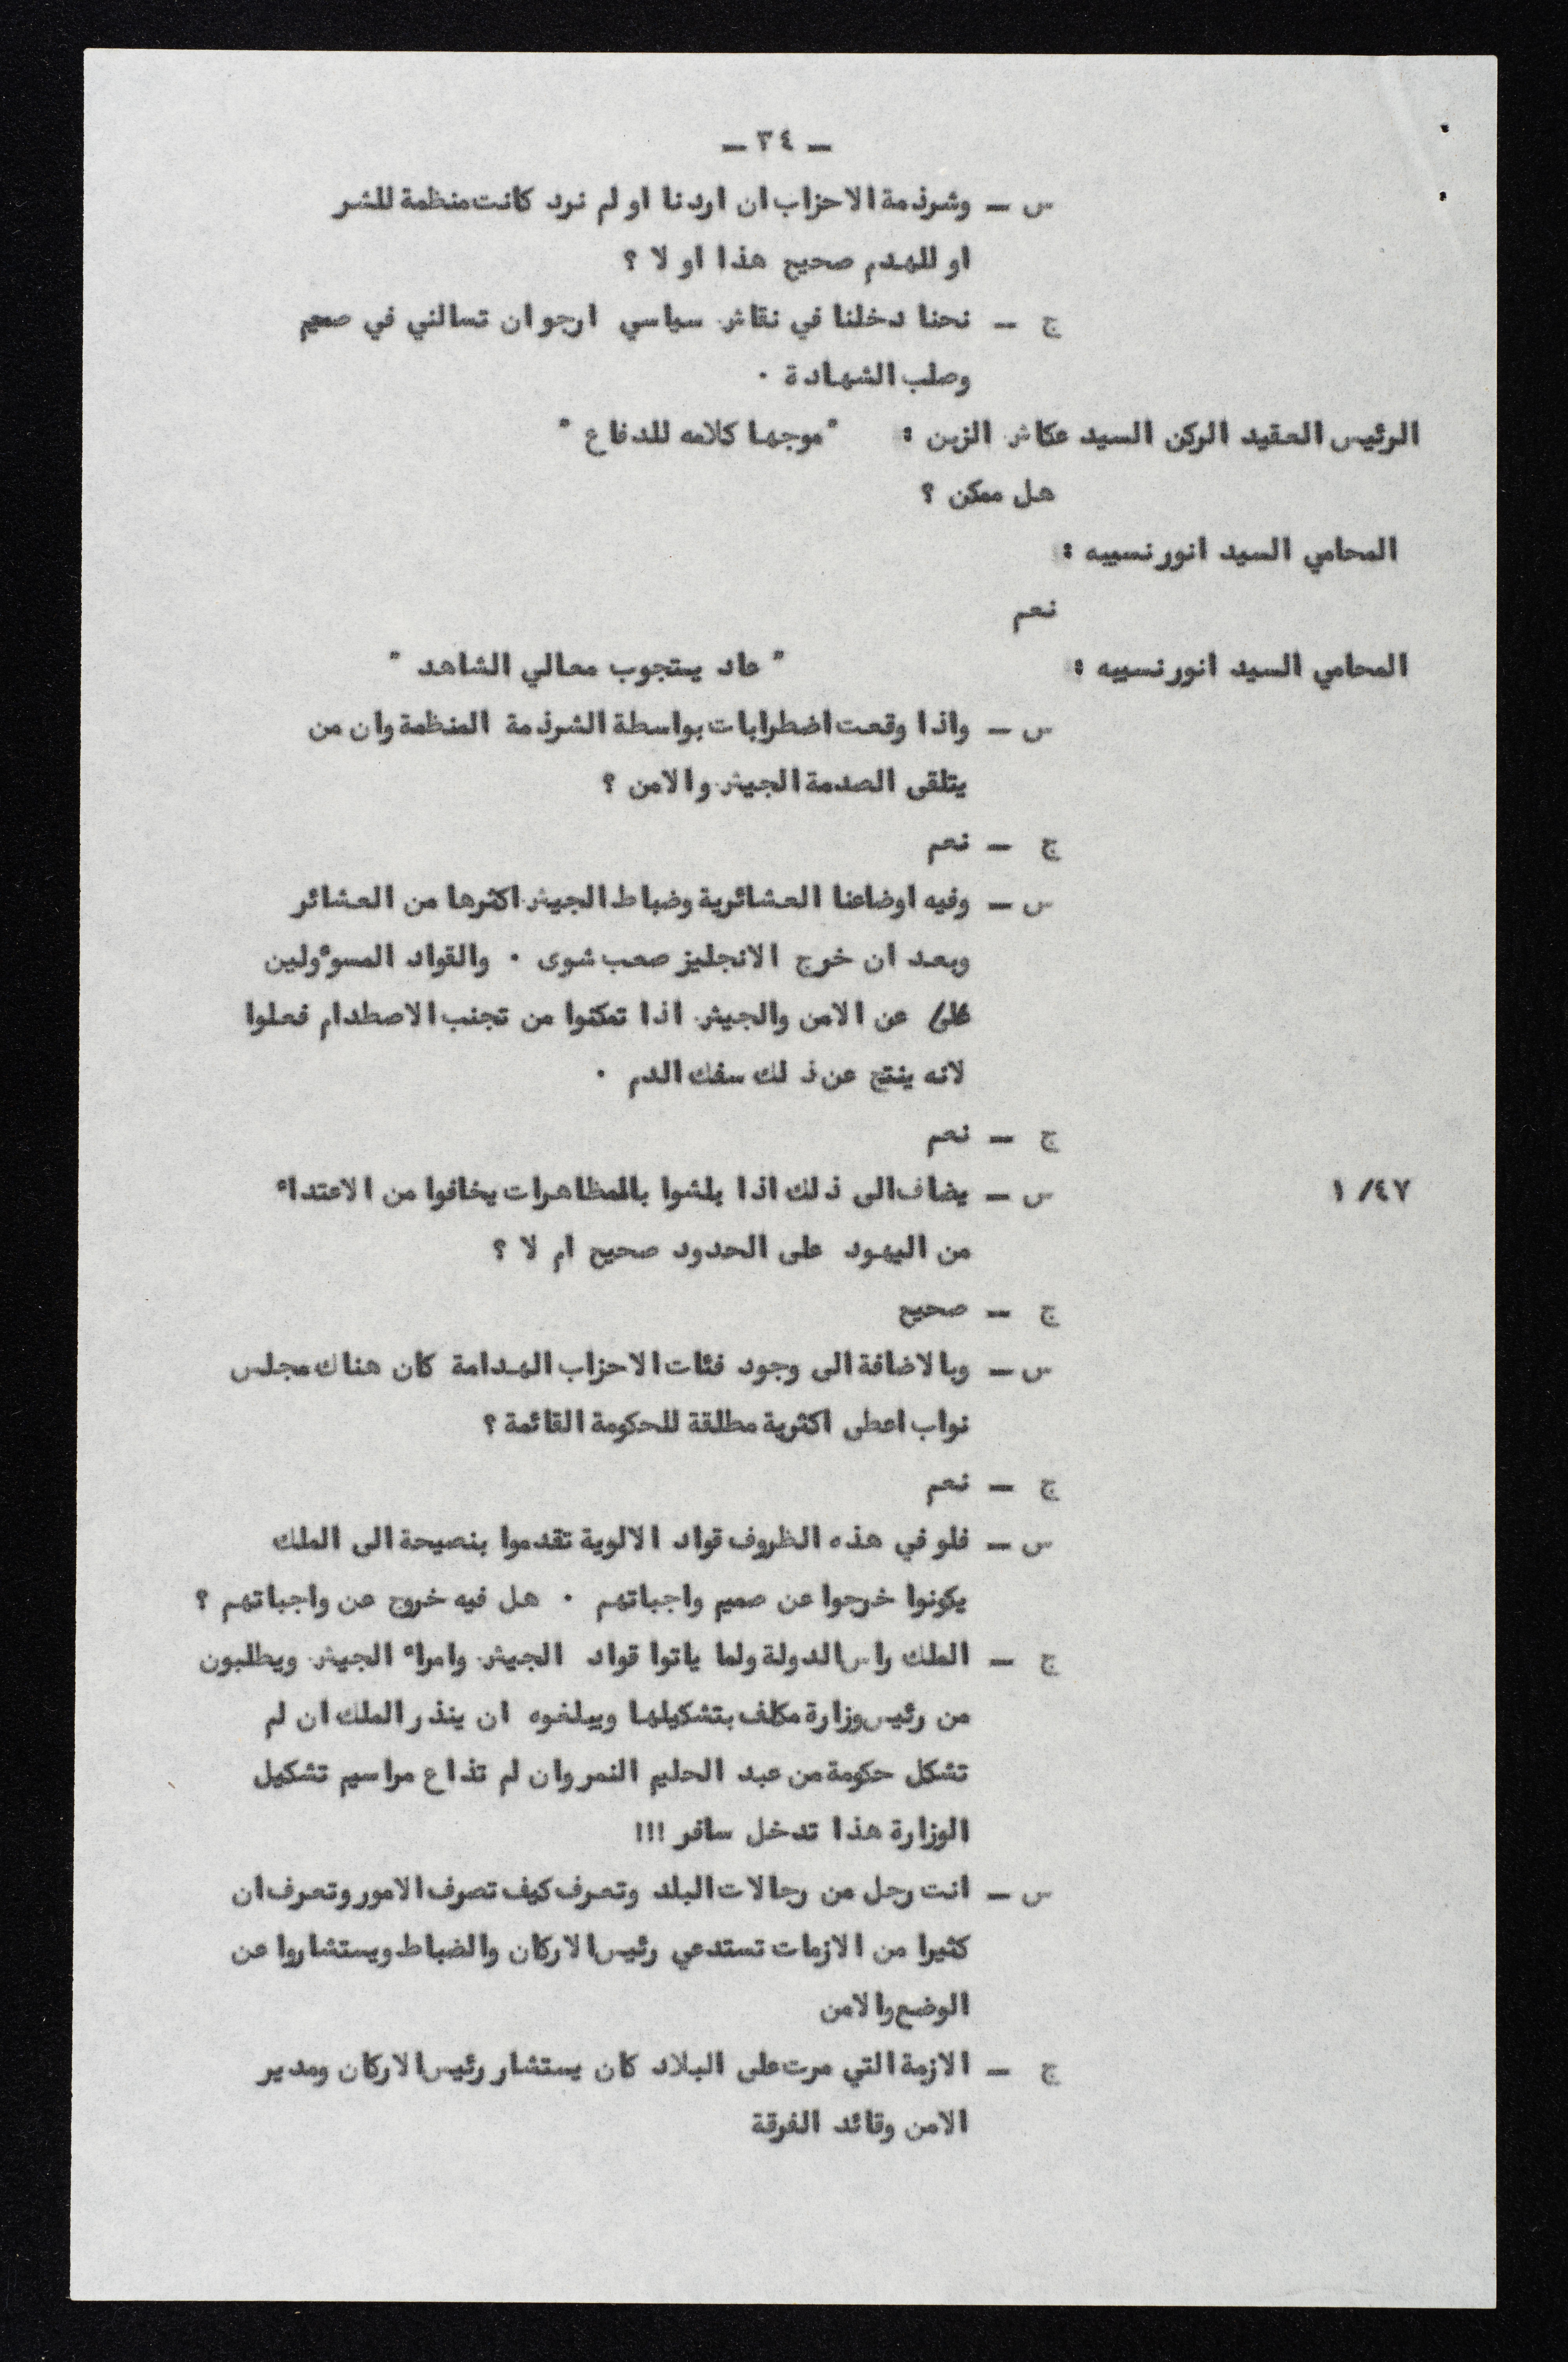 ـ ٣٤ ـ
س ـ وشرذمة الاحزاب ان اردنا او لم نرد كانت منظمة للشر
او للهدم صحيح هذا او لا ؟
ج ـ نحنا دخلنا في نقاش سياسي ارجو ان تسالني في صميم
وصلب الشهادة ٠
الرئيس العقيد الركن السيد عكاش الزبن : " موجها كلامه للدفاع "
هل ممكن ؟
المحامي السيد انور نسيبه :
نعم
المحامي السيد انور نسيبه : " عاد يستجوب معالي الشاهد "
س ـ واذا وقعت اضطرابات بواسطة الشرذمة المنظمة وان من
يتلقى الصدمة الجيش والامن ؟
ج ـ نعم
س ـ وفيه اوضاعنا العشائرية وضباط الجيش اكثرها من العشائر
وبعد ان خرج الانجليز صعب شوى ٠ والقواد المسوءولين
على عن الامن والجيش اذا تمكنوا من تجنب الاصطدام فعلوا
لانه ينتج عن ذلك سفك الدم ٠
ج ـ نعم
٤٧/ ١ س ـ يضاف الى ذلك اذا بلشوا بالمظاهرات يخافوا من الاعتداء
من اليهود على الحدود صحيح ام لا ؟
ج ـ صحيح
س ـ وبالاضافة الى وجود فئات الاحزاب الهدامة كان هناك مجلس
نواب اعطى اكثرية مطلقة للحكومة القائمة ؟
ج ـ نعم
س ـ فلو في هذه الظروف قواد الالوية تقدموا بنصيحة الى الملك
يكونوا خرجوا عن صميم واجباتهم ٠ هل فيه خروج عن واجباتهم ؟
ج ـ الملك راس الدولة ولما ياتوا قواد الجيش وامراء الجيش ويطلبون
من رئيس وزارة مكلف بتشكيلها ويبلغوه ان ينذر الملك ان لم
تشكل حكومة من عبد الحليم النمر وان لم تذاع مراسيم تشكيل
الوزارة هذا تدخل سافر !!!
س ـ انت رجل من رجالات البلد وتعرف كيف تصرف الامور وتعرف ان
كثيرا من الازمات تستدعي رئيس الاركان والضباط ويستشاروا عن
الوضع والامن
ج ـ الازمة التي مرت على البلاد كان يستشار رئيس الاركان ومدير
الامن وقائد الفرقة